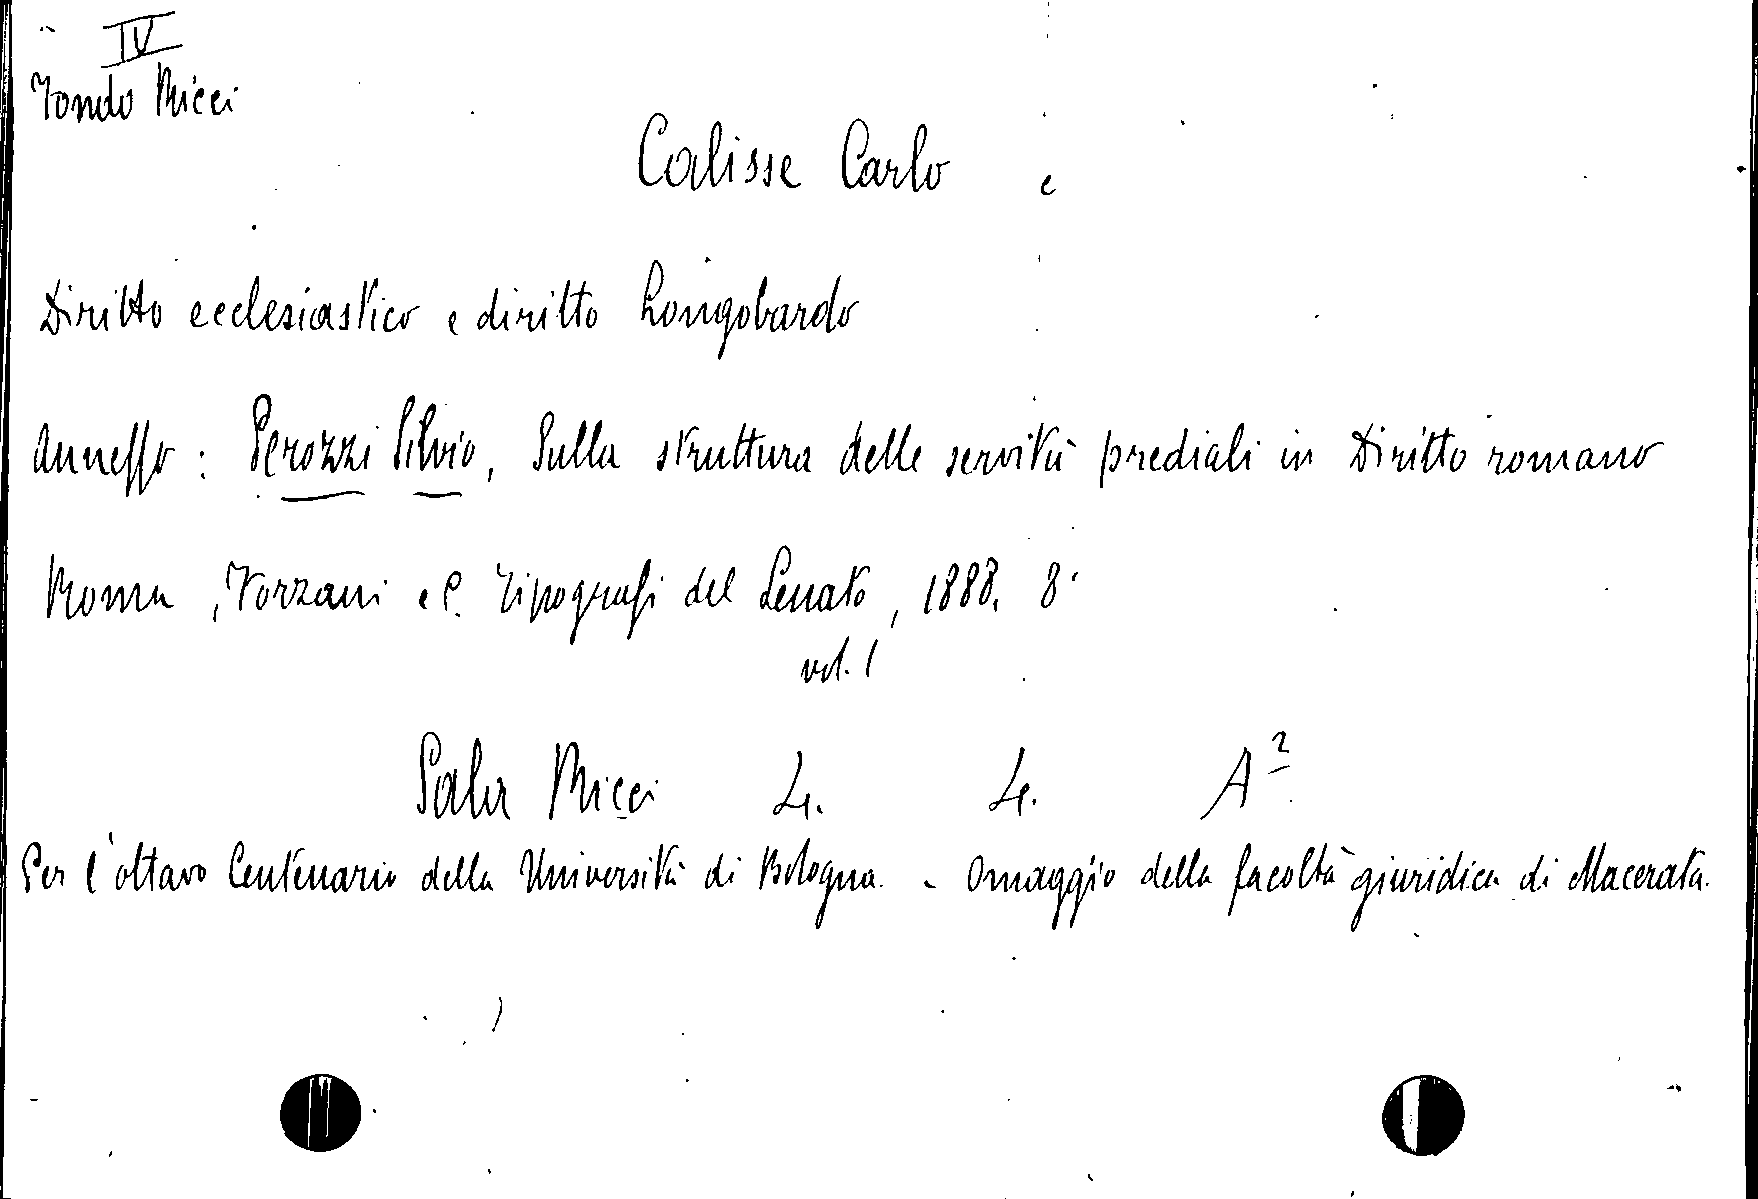 IV
Fondo Ricci
Calisse Carlo e
Diritto ecclesiastico e diritto Longobardo
Annesso : Perozzi Silvio, Sulla struttura delle servitù prediali in Diritto romano
Roma , Forzani e C. Tipografi del Senato, 1888. 8°
vol. 1
Sala Ricci 4. 4. A²
Per l'ottavo Centenario della Università di Bologna. - Omaggio della facoltà giuridica di Macerata.